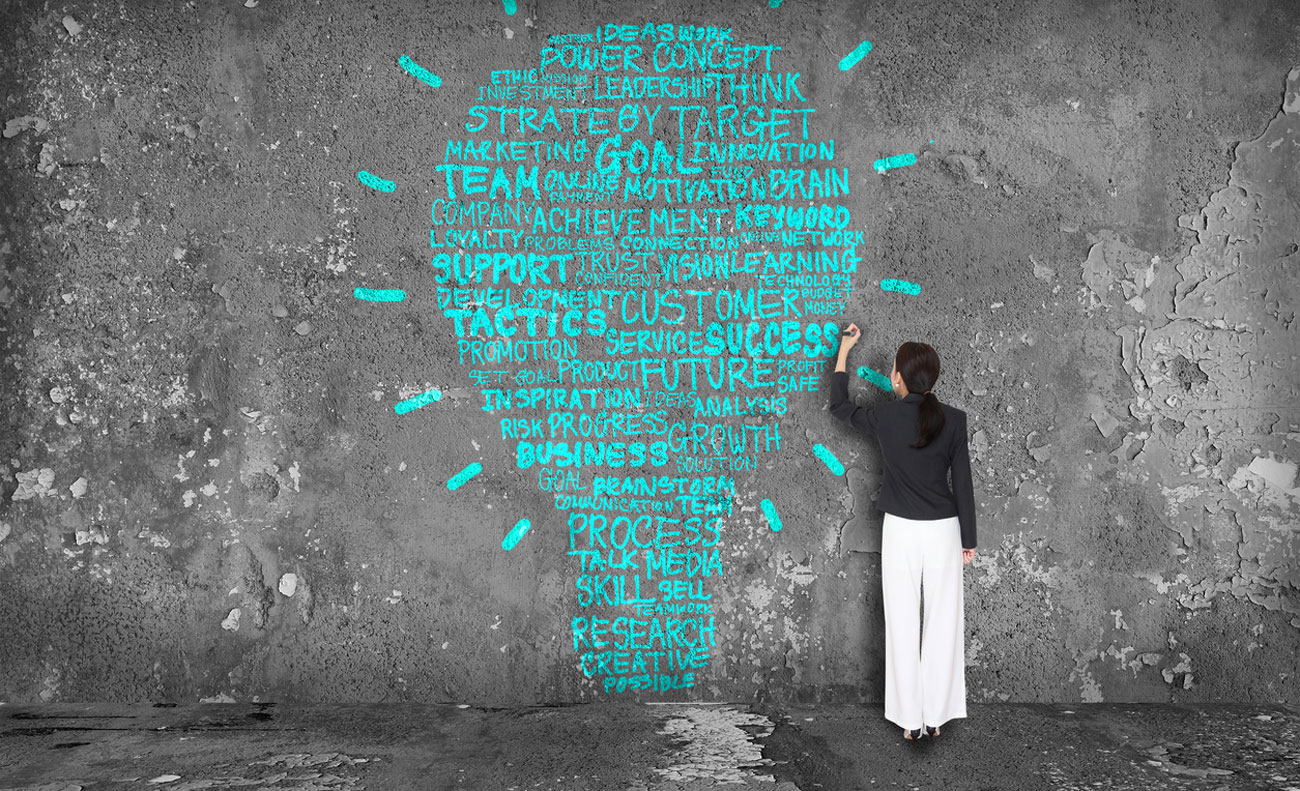 IDEAS WORK
POWER CONCEPT
ETHIC MISSION LEADERSHIP THINK
INVESTMENT
STRATEGY TARGET
MARKETING GOAL INNOVATION
TEAM ONLINE MOTIVATION BRAIN
PAYMENT
COMPANY ACHIEVEMENT KEYWORD
LOYALTY PROBLEMS CONNECTION ONLINE NETWORK
SUPPORT TRUST VISION LEARNING
CONFIDENT TECHNOLOGY
DEVELOPMENT CUSTOMER BUDGET
MONEY
TACTICS SERVICE SUCCESS
PROMOTION
SET GOAL PRODUCT FUTURE PROFIT
SAFE
INSPIRATION IDEAS ANALYSIS
RISK PROGRESS GROWTH
BUSINESS SOLUTION
GOAL BRAINSTORM
COMMUNICATION TEAM
PROCESS
TALK MEDIA
SKILL SELL
TEAMWORK
RESEARCH
CREATIVE
POSSIBLE